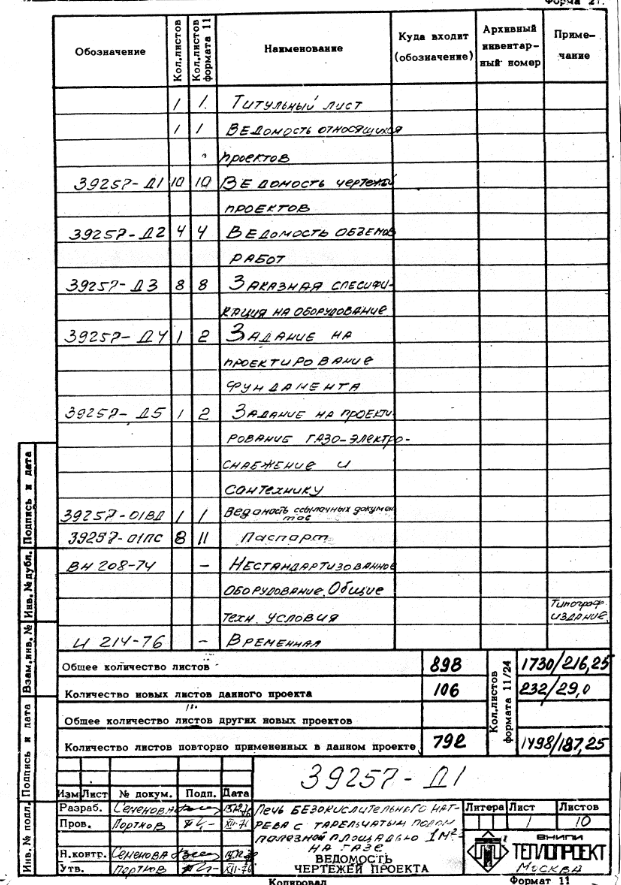 Форма 21.
Обозначение Кол.листов Кол.листов формата 11 Наименование Куда входит (обозначение) Архивный инвентар- ный номер Приме- чание
1 1 Титульный лист
1 1 Ведомость относящихся
проектов
39257-Д1 10 10 Ведомость чертежей
проектов
39257-Д2 4 4 Ведомость объемов
работ
39257-Д3 8 8 Заказная специфи-
кация на оборудование
39257-Д4 1 2 Задание на
проектирование
фундамента
39257-Д5 1 2 Задание на проекти
рование газо-электро-
снабжение и
сантехнику
39257-01ВД 1 1 Ведомость ссылочных докумен
тов
39257-01ПС 8 11 Паспорт
ВН 208-74 - Нестандартизованное
оборудование. Общие
техн. условия Типограф издание
И 214-76 - Временная
Общее количество листов 898 Кол.листов формата 11/24 1730/216,25
Количество новых листов данного проекта 106 232/29,0
Общее количество листов других новых проектов
Количество листов повторно примененных в данном проекте 792 1498/187,25
Инв. № подл. Подпись и дата Взам.инв. № Инв. № дубл. Подпись и дата
39257-Д1
Изм Лист № докум. Подп. Дата
Разраб. Семенова
Пров. Портнов
Н.контр. Семенова
Утв. Портнов
Печь безокислительного наг-
рева с тарельчатым подом
полезной площадью 1м²
на газе
ВЕДОМОСТЬ
ЧЕРТЕЖЕЙ ПРОЕКТА
Литера Лист Листов
1 10
ВНИПИ
ТЕПЛОПРОЕКТ
Москва
Копировал Формат 11